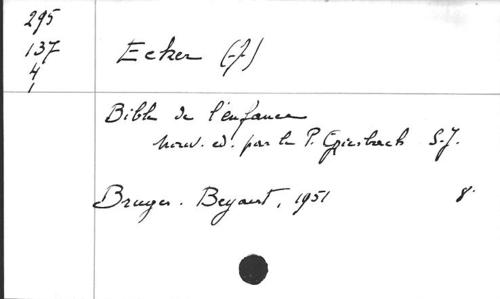 295
137
4
1
Ecker (J)
Bible de l'enfance
nouv. ed. par le P. Griesbach S.J.
Bruges. Beyaert, 1951 8°